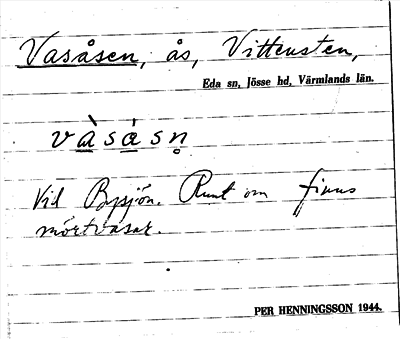 Vasåsen, ås, Vittensten,
Eda sn, Jösse hd, Värmlands län.
v à s å s n̥
Vid Bysjön. Runt om finns
mörtvasar.
PER HENNINGSSON 1944.